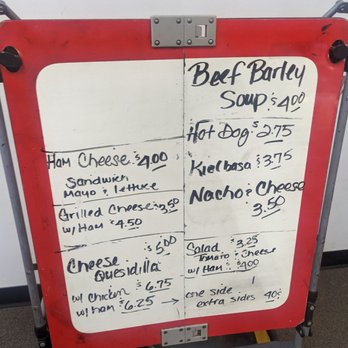 Ham Cheese $4.00
Sandwich
Mayo & lettuce
Grilled Cheese $3.50
w/ Ham $4.50
$5.00
Cheese
Quesidilla
w/ chicken $6.75
w/ Ham $6.25 →
Beef Barley
Soup $4.00
Hot Dog $2.75
Kielbasa $3.75
Nacho & Cheese
3.50
Salad $3.25
Tomato & Cheese
w/ Ham $4.00
one side
extra sides 40¢